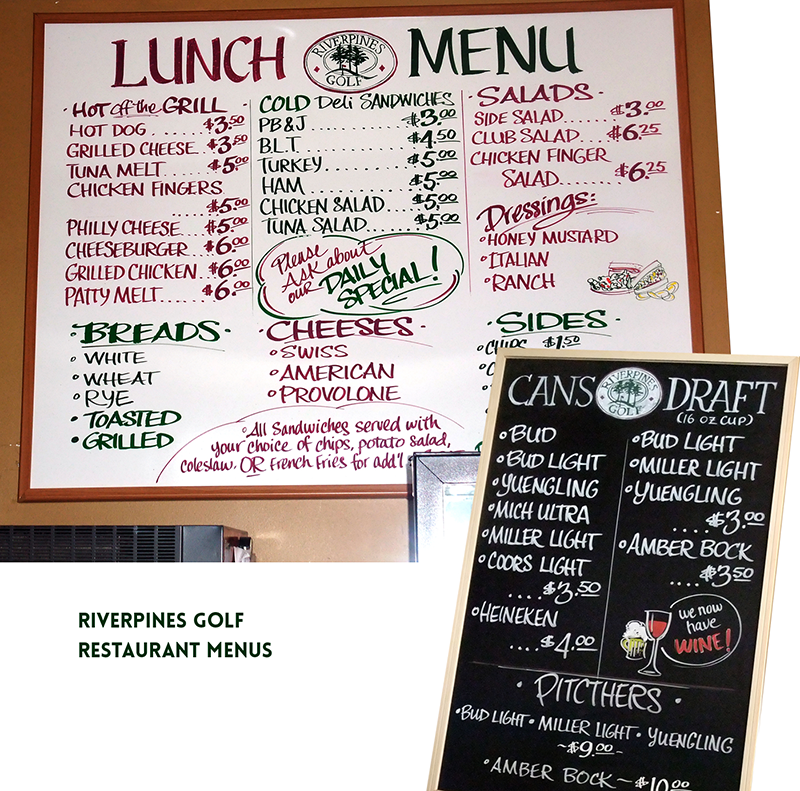 LUNCH RIVERPINES GOLF MENU
• HOT off the GRILL
HOT DOG ...... $3.50
GRILLED CHEESE .. $3.50
TUNA MELT ..... $5.00
CHICKEN FINGERS
..... $5.00
PHILLY CHEESE .. $5.00
CHEESEBURGER .. $6.00
GRILLED CHICKEN . $6.00
PATTY MELT .... $6.00
COLD Deli SANDWICHES
PB&J .......... $3.00
B.L.T. ......... $4.50
TURKEY ........ $5.00
HAM .......... $5.00
CHICKEN SALAD .... $5.00
TUNA SALAD ..... $5.00
Please
Ask about
our DAILY
SPECIAL!
• SALADS •
SIDE SALAD ..... $3.00
CLUB SALAD .... $6.25
CHICKEN FINGER
SALAD ...... $6.25
Dressings:
• HONEY MUSTARD
• ITALIAN
• RANCH
• BREADS •
• WHITE
• WHEAT
• RYE
• TOASTED
• GRILLED
• CHEESES •
• SWISS
• AMERICAN
• PROVOLONE
• SIDES •
• CHIPS $1.50
• All Sandwiches served with
your choice of chips, potato salad,
coleslaw. OR French Fries for add'l
CANS RIVERPINES GOLF DRAFT
(16 OZ CUP)
• BUD
• BUD LIGHT
• YUENGLING
• MICH ULTRA
• MILLER LIGHT
• COORS LIGHT
.... $3.50
• HEINEKEN
.... $4.00
• BUD LIGHT
• MILLER LIGHT
• YUENGLING
.... $3.00
• AMBER BOCK
.... $3.50
we now
have
WINE!
• PITCTHERS •
• BUD LIGHT • MILLER LIGHT • YUENGLING
~ $9.00 ~
• AMBER BOCK ~ $10.00
RIVERPINES GOLF
RESTAURANT MENUS